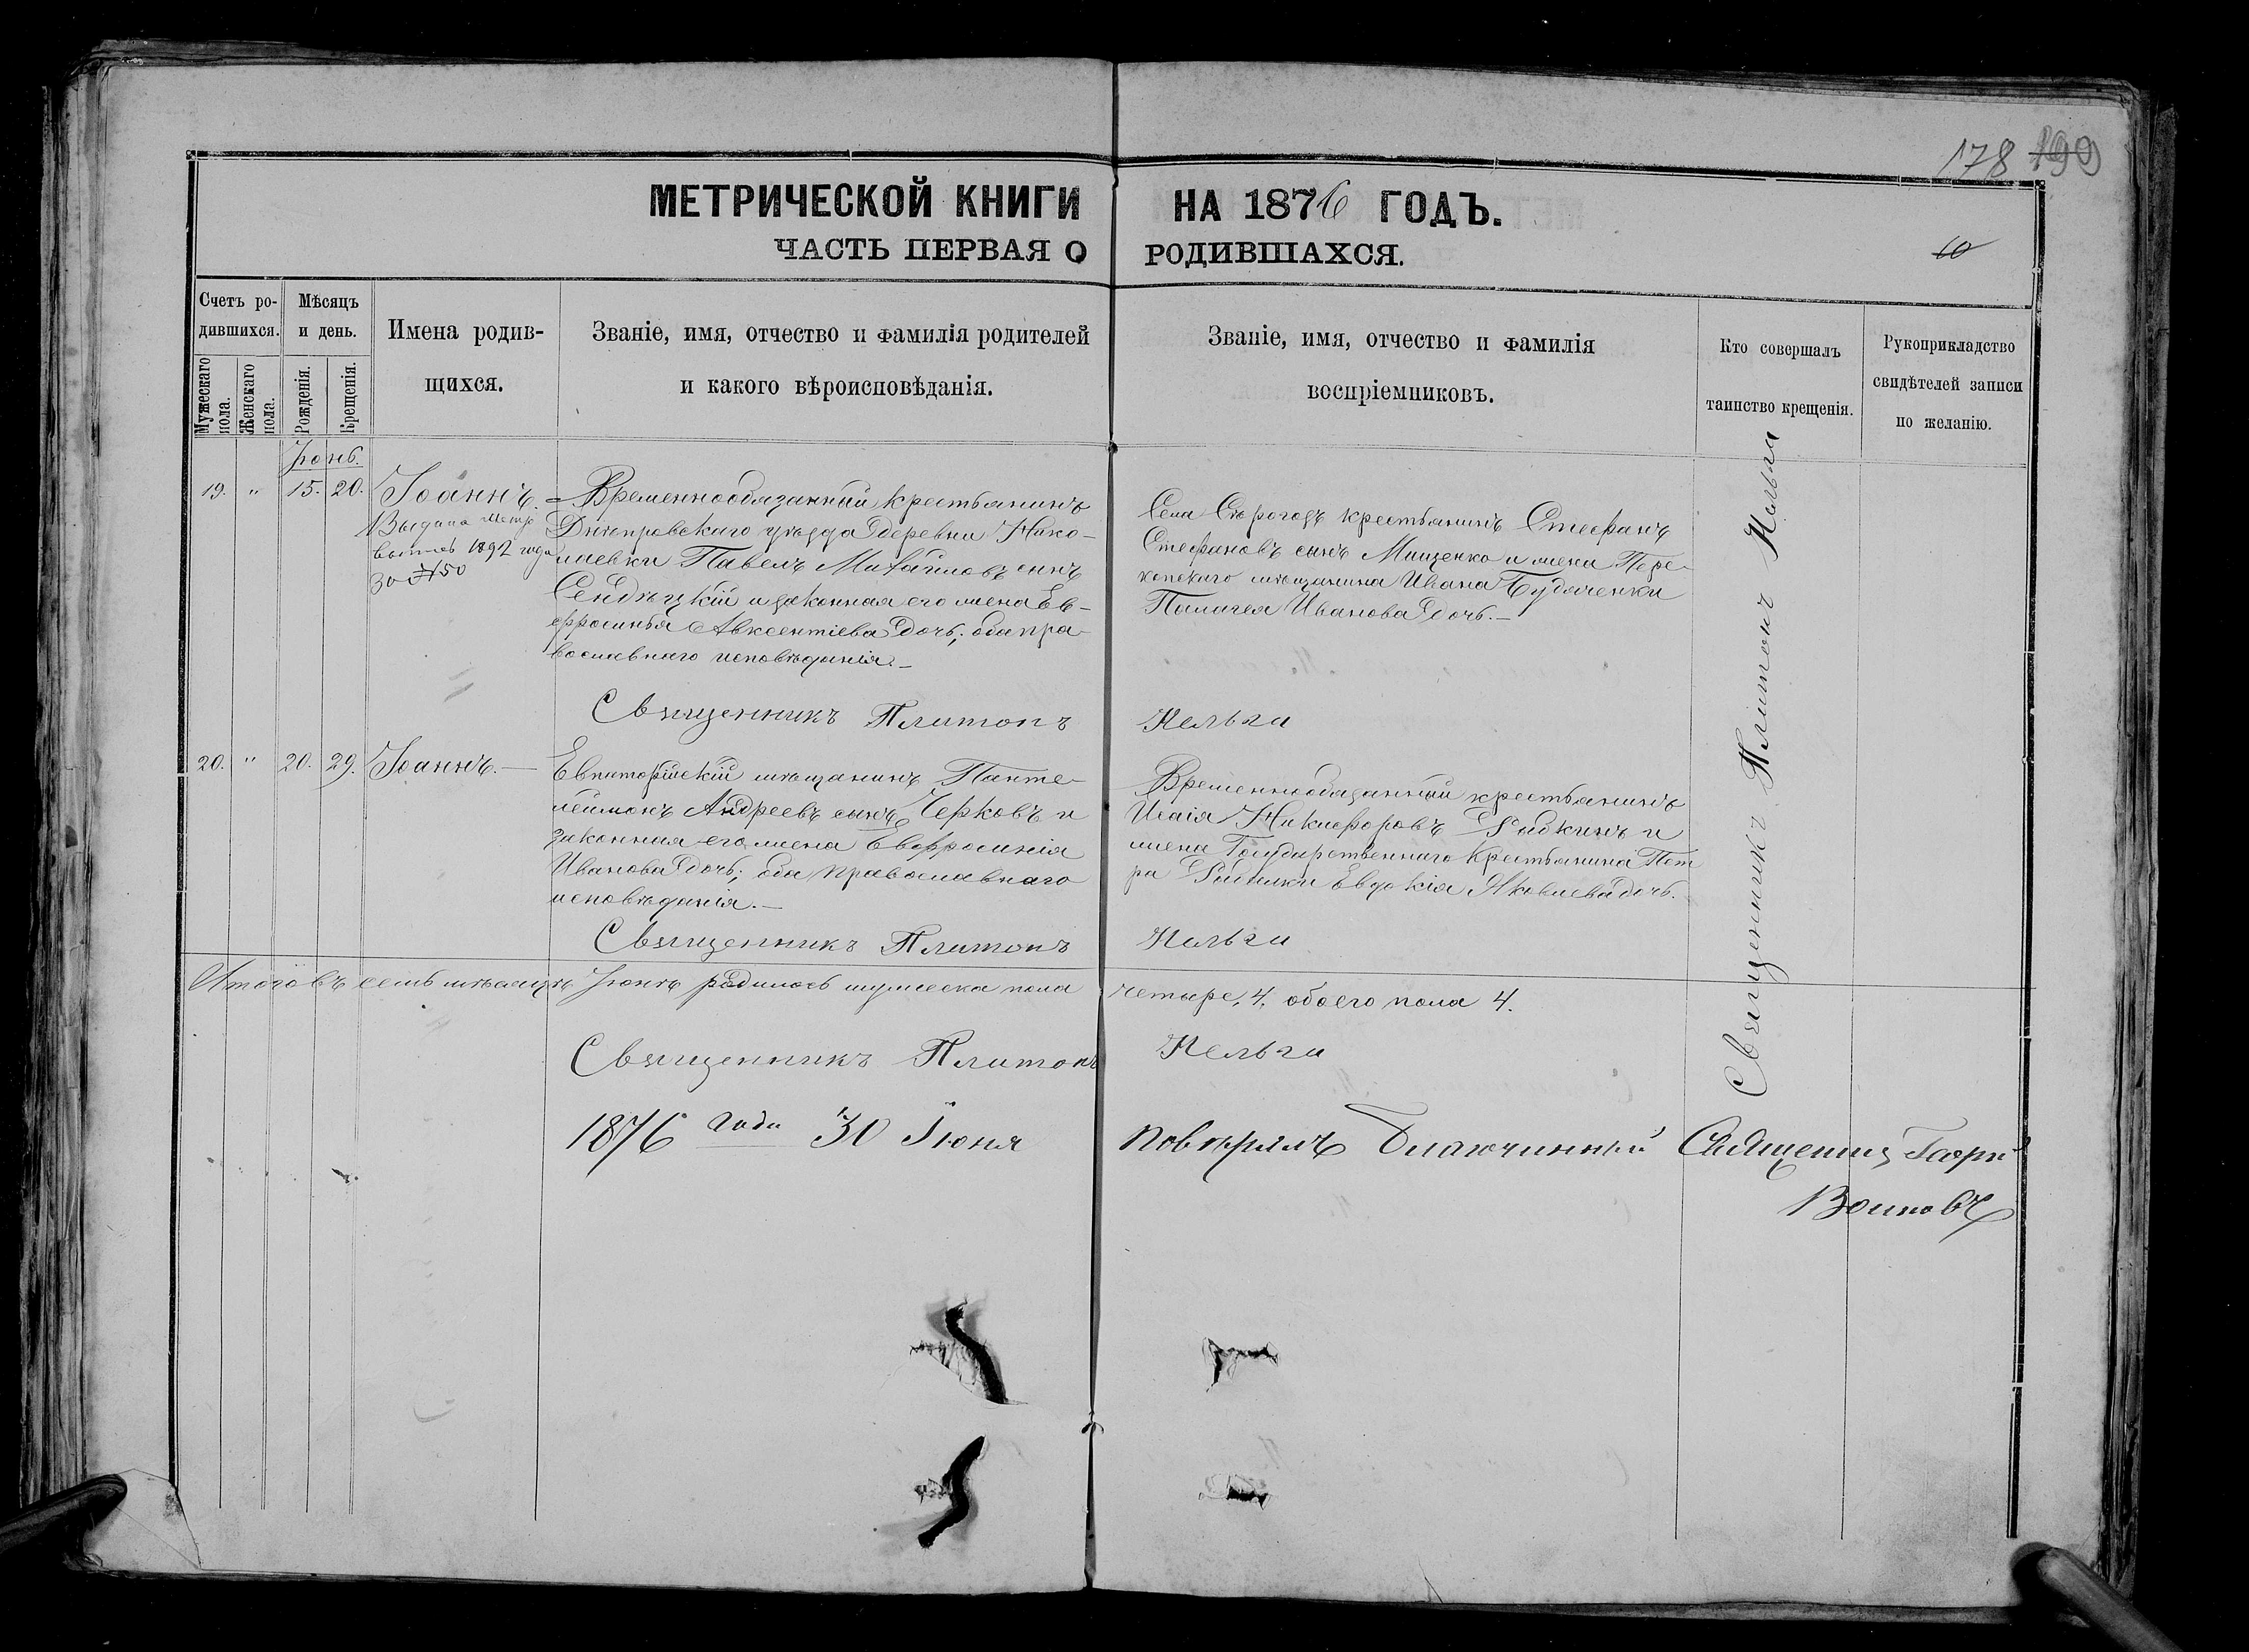 178 190
МЕТРИЧЕСКОЙ КНИГИ НА 1876 ГОДЪ.
ЧАСТЬ ПЕРВАЯ О РОДИВШАХСЯ.
10
Счетъ ро-
дившихся.
Мужескаго пола.
Женскаго пола.
Мѣсяцъ
и день.
Рожденія.
Крещенія.
Имена родив-
щихся.
Званіе, имя, отчество и фамилія родителей
и какого вѣроисповѣданія.
Званіе, имя, отчество и фамилія
воспріемниковъ.
Кто совершалъ
таинство крещенія.
Рукоприкладство
свидѣтелей записи
по желанію.
Іюнь.
19. " 15. 20. Іоаннъ.
Выдана метр
выпись 1892 года
30 №50
Временнообязанный крестьянинъ
Днѣпровскаго уѣзда деревни Нико-
лаевки Павелъ Михайловъ сынъ
Сендѣцкій и законная его жена Ев-
фросинья Авксентіева дочь; оба пра-
вославнаго исповѣданія.—
Села Сѣрогозъ крестьянинъ Стефанъ
Стефановъ сынъ Мищенко и жена Пере-
копскаго мѣщанина Ивана
Пелагея Иванова дочь.—
Священникъ Платонъ Кельга
20. " 20. 29. Іоаннъ.—
Евпаторійскій мѣщанинъ Панте-
леймонъ Андреевъ сынъ Черковъ и
законная его жена Евфросинія
Иванова дочь; оба православнаго
исповѣданія.—
Временнообязанный крестьянинъ
Исаія Никифоровъ Рибкинъ и
жена Государственнаго крестьянина Пет
ра Евдокія Яковлева дочь.
Священникъ Платонъ Кельга
Священникъ Платонъ Кельга
Итого въ семъ мѣсяцѣ Іюнѣ родилось мужеска пола четыре, 4, обоего пола 4.
Священникъ Платонъ Кельга
1876 года 30 Іюня повѣрялъ Благочинный Священникъ Георгій
Воиновъ